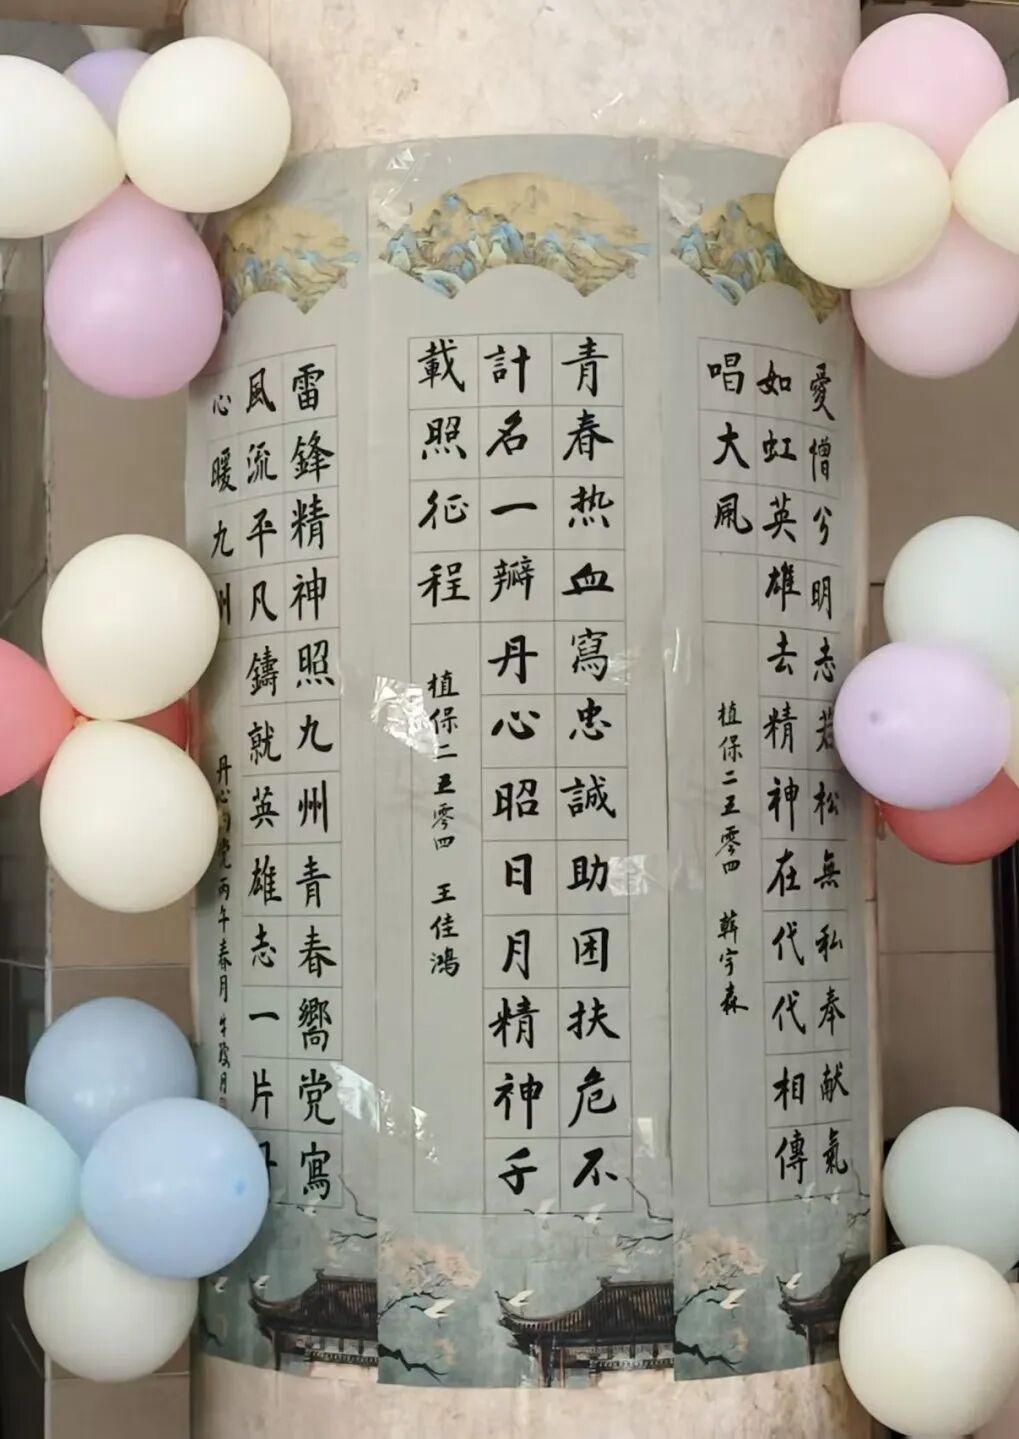 愛憎兮明志若松無私奉献氣
如虹英雄去精神在代代相傳
唱大風
植保二五零四 韓宇森
青春热血寫忠誠助困扶危不
計名一瓣丹心昭日月精神千
載照征程
植保二五零四 王佳鴻
雷鋒精神照九州青春嚮党寫
風流平凡鑄就英雄志一片丹
心暖九州
丹心向党 丙午春月